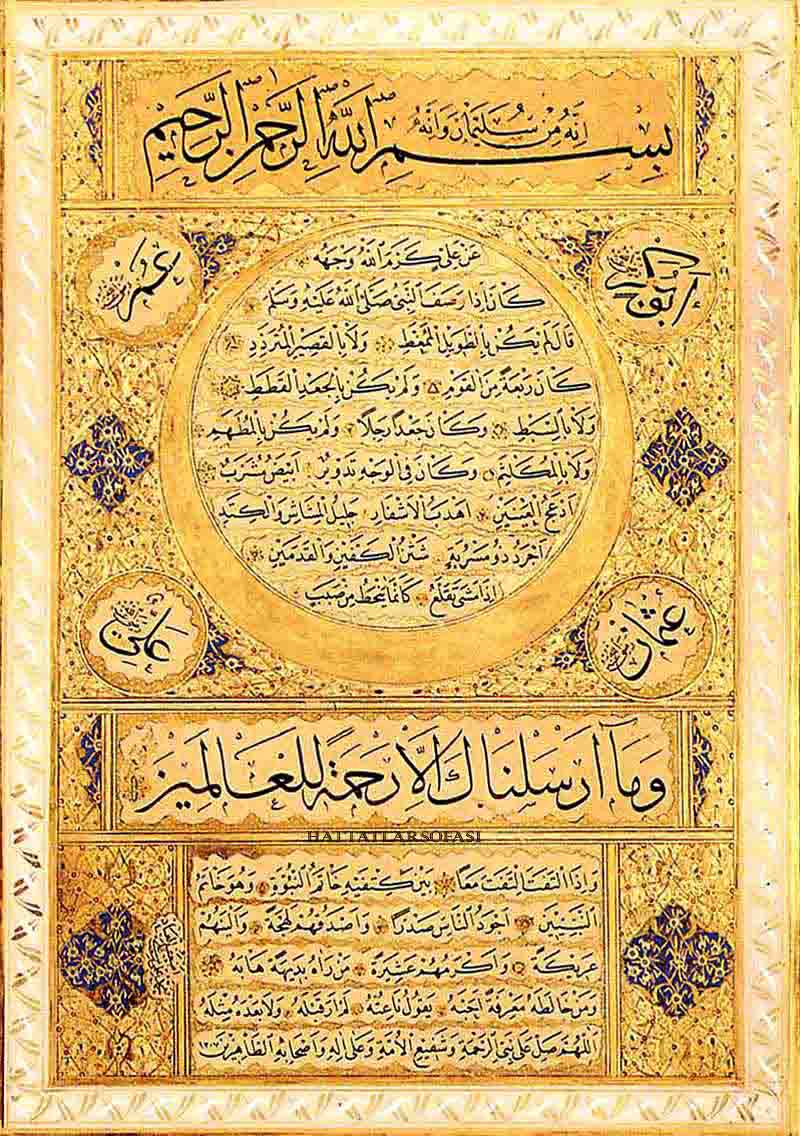 انه من سليمان وانه
بسم الله الرحمن الرحيم
ابو بكر
عمر
عن علي كرم الله وجهه
كان اذا وصف النبي صلى الله عليه وسلم
قال لم يكن بالطويل الممغط ولا بالقصير المتردد
كان ربعة من القوم ولم يكن بالجعد القطط
ولا بالسبط وكان جعدا رجلا ولم يكن بالمطهم
ولا بالمكلثم وكان في الوجه تدوير ابيض مشرب
ادعج العينين اهدب الاشفار جليل المشاش والكتد
اجرد ذو مسربة شثن الكفين والقدمين
اذا مشى تقلع كانما ينحط من صبب
عثمان
علي
وما ارسلناك الا رحمة للعالمين
HATTATLARSOFASI
واذا التفت التفت معا بين كتفيه خاتم النبوة وهو خاتم
النبيين اجود الناس صدرا واصدقهم لهجة والينهم
عريكة واكرمهم عشيرة من رآه بديهة هابه
ومن خالطه معرفة احبه يقول ناعته لم ار قبله ولا بعده مثله
اللهم صل على نبي الرحمة وشفيع الامة وعلى اله واصحابه الطاهرين